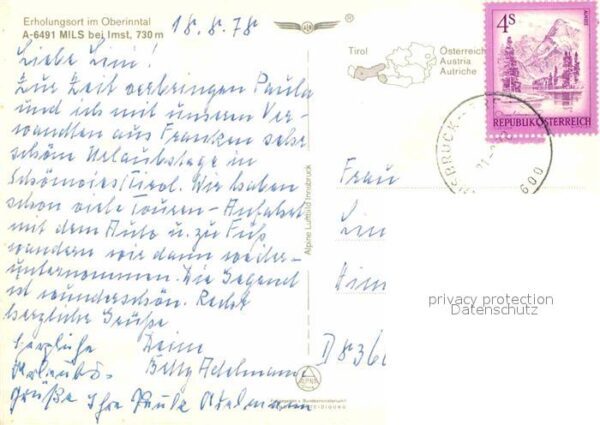 Erholungsort im Oberinntal
A-6491 MILS bei Imst, 730 m
18.8.78
Liebe Lini!
Zur Zeit verbringen Paula
und ich mit unseren Ver-
wandten aus Franken sehr
schöne Urlaubstage in
Schönwies/Tirol. Wir haben
schon viele Touren - Anfahrt
mit dem Auto u. zu Fuß
wandern wir dann weiter-
unternommen. Die Gegend
ist wunderschön. Recht
herzliche Grüße
Deine
Betty Adelmann
Herzliche
Urlaubs-
grüße Ihre Paula Adelmann
Alpine Luftbild Innsbruck
Tirol
Österreich
Austria
Autriche
4 S
REPUBLIK ÖSTERREICH
Frau
Lin
D 836
privacy protection
Datenschutz